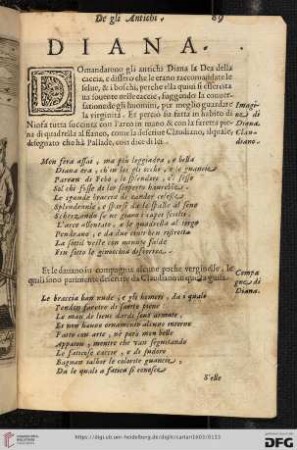 De gli Antichi. 69
DIANA.
Domandarono gli antichi Diana la Dea della
caccia, e dissero che le erano raccomandate le
selue, & i boschi, perche ella quiui si essercita
ua souente nelle caccie, fuggendo la conuer-
satione de gli huomini, per meglio guardare
la virginità. Et perciò fu fatta in habito di
Ninfa tutta succinta con l'arco in mano & con la faretra pie-
na di quadrella al fianco, come la descriue Claudiano, il quale,
disegnato che hà Pallade, così dice di lei.
Imagi-
ne di
Diana.
Clau-
diano.
Men fera assai, ma più leggiadra, e bella
Diana era, ch'in lei gli occhi, e le guancie
Parean di Febo, lo splendore, e il sesso
Sol che fosse di lor scoperto haurebbe.
Le ignude braccia di candor celeste
Splendeuale, e sparsi da le spalle al seno
Scherzando se ne giuan i vaghi
L'arco allentato, e le quadrella al tergo
Pendeano, e da due ristretta
La sottil veste con minute falde
Fin sotto le ginocchia discorrea.
Et le danno in compagnia alcune poche verginelle, le
quali sono parimente descritte da Claudiano in questa guisa.
Compa
gne di
Diana.
Le braccia han nude, e gli homeri, da i quali
Pendon faretre di saette piene
Le man di lieui dardi sono armate,
Et non hanno ornamento alcuno intorno
Fatto con arte, nè però men belle
Appaion, mentre che van seguitando
Le faticose caccie, e di sudore
Bagnan talhor le colorite guancie,
Da le quali a fatica si conosce
S'elle
http://digi.ub.uni-heidelberg.de/diglit/cartari1603/0153
DFG